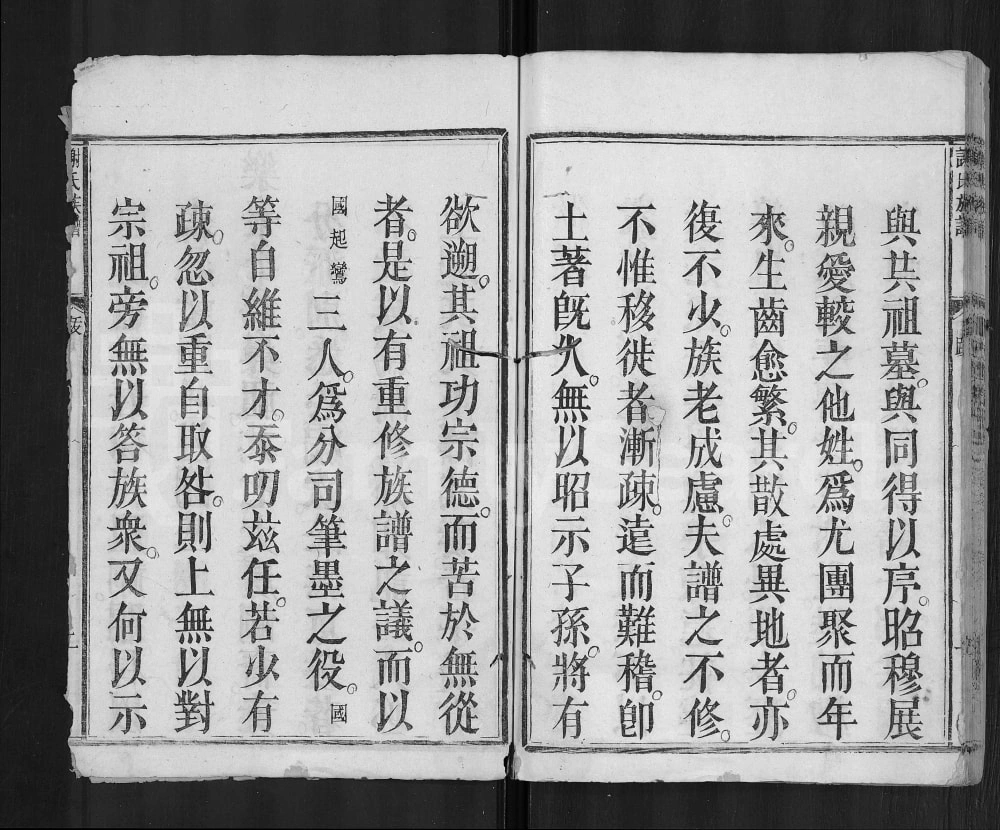 與共祖墓。與同得以序。昭穆展
親愛較之他姓。爲尤團聚而年
來。生齒愈繁。其散處異地者。亦
復不少。族老成慮。夫譜之不修。
不惟移徙者漸疎。遠而難稽。卽
土著旣久。無以昭示子孫。將有
欲遡。其祖功宗德。而苦於無從
者。是以有重修族譜之議。而以
國起鸞三人。爲分司筆墨之役。國
等自維不才。忝叨茲任。若少有
疎。忽以重自取咎。則上無以對
宗祖。旁無以答族衆。又何以示
謝氏族譜